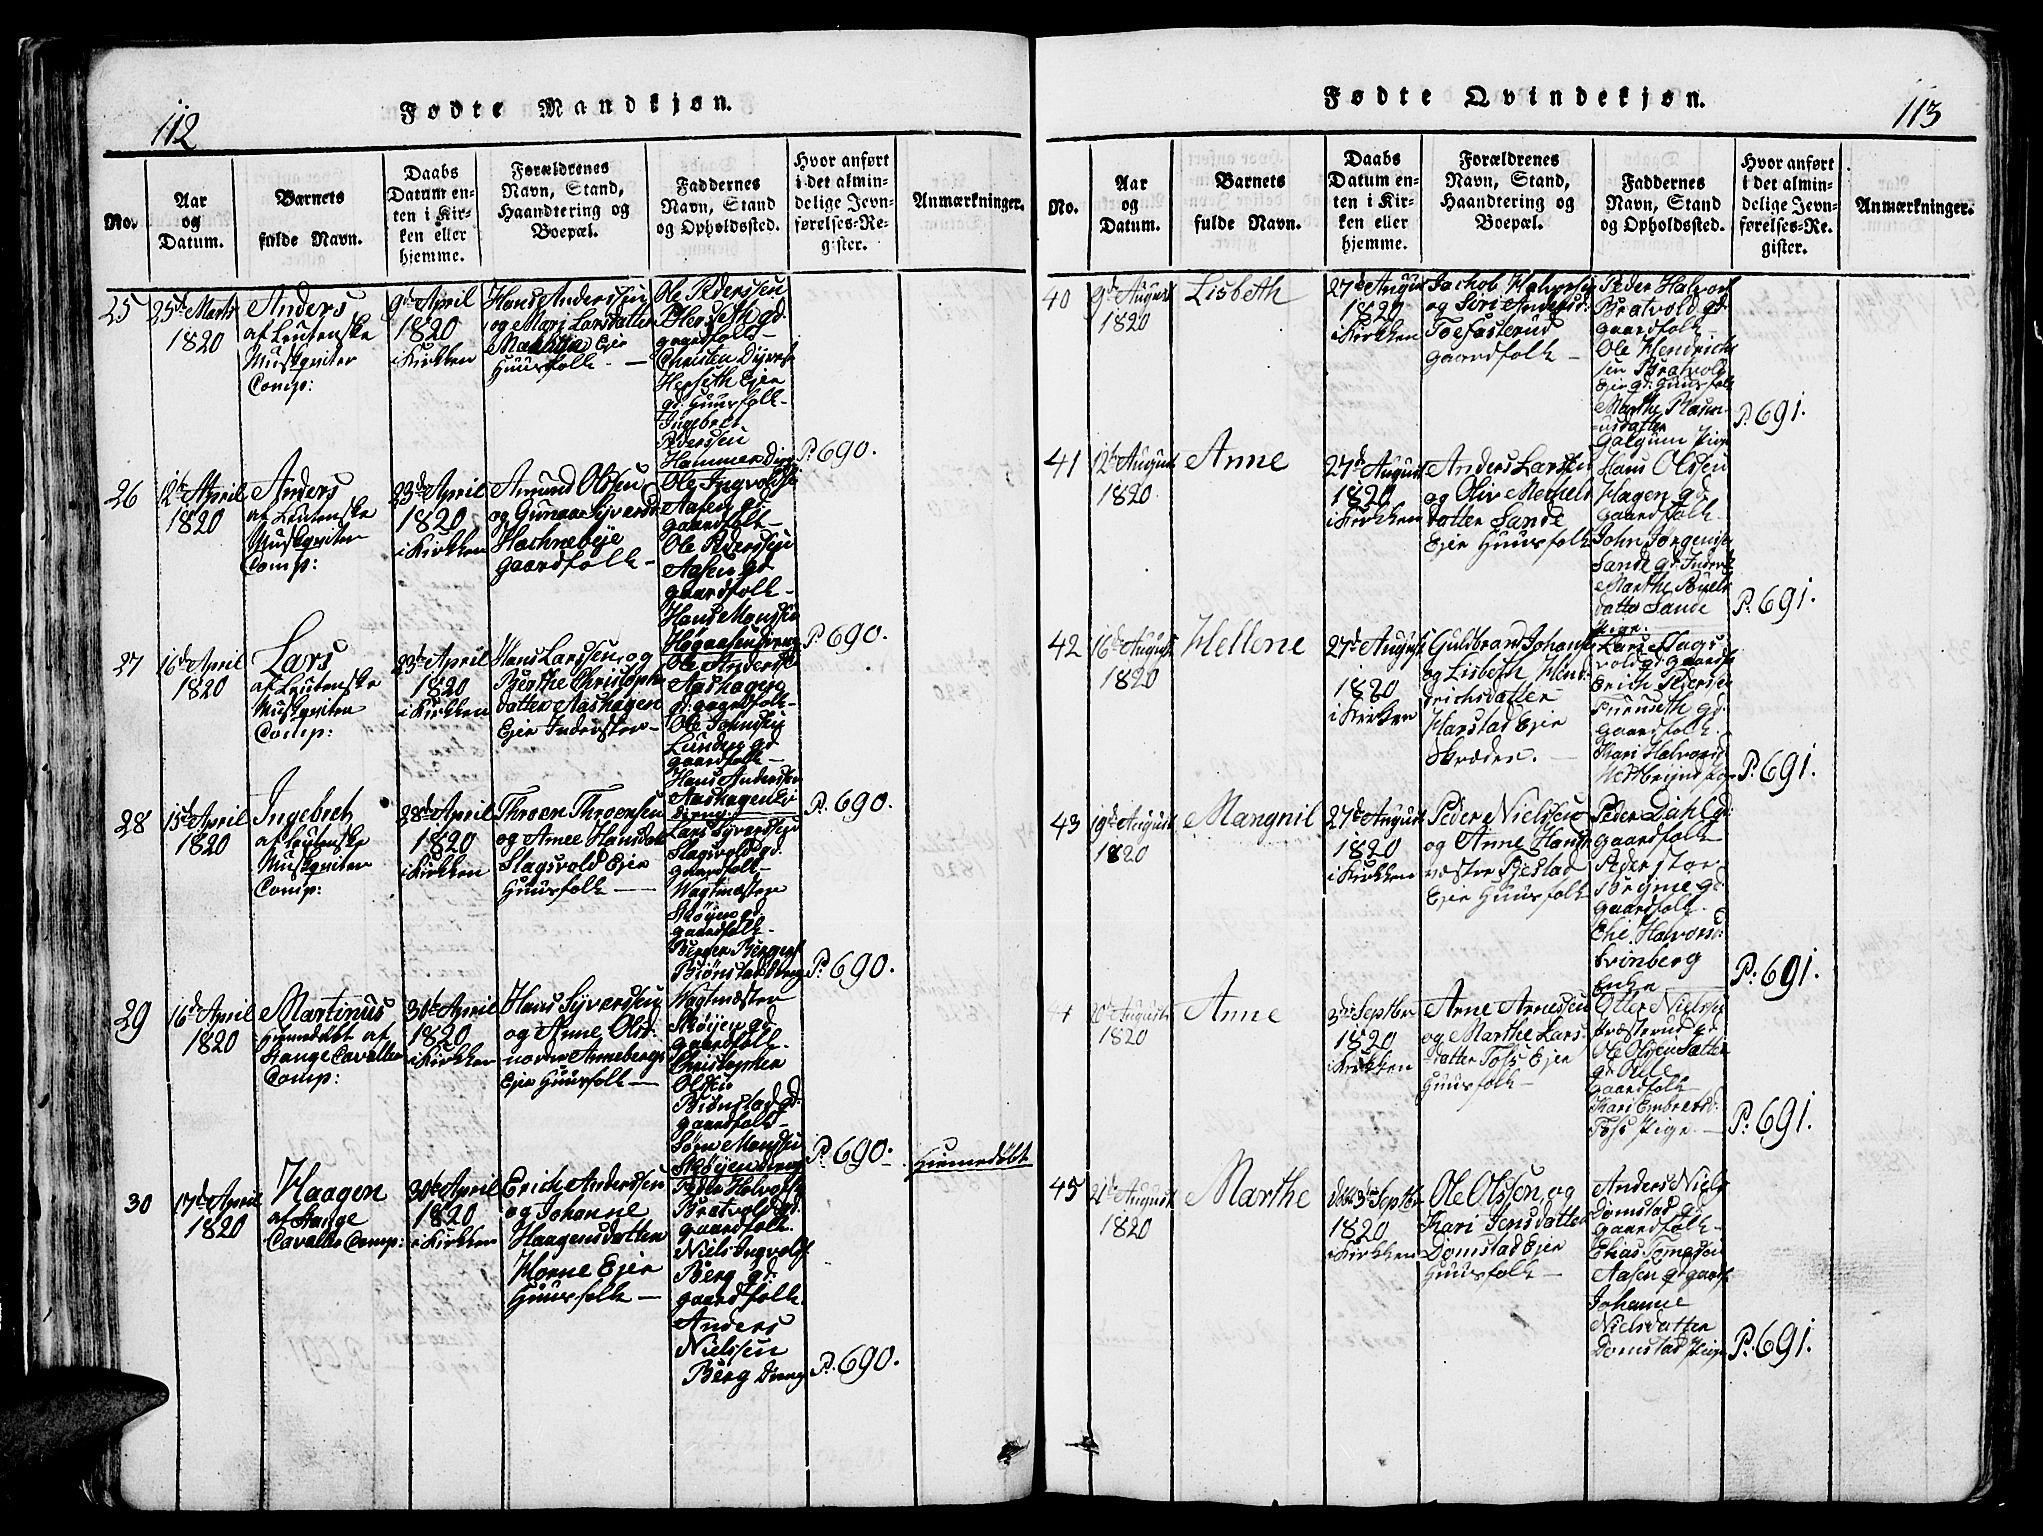 112
Fødte Mandkjøn.
No.
Aar
og
Datum.
Barnets
fulde Navn.
Daabs
Datum en-
ten i Kir-
ken eller
hjemme.
Forældrenes
Navn, Stand,
Haandtering og
Boepæl.
Faddernes
Navn, Stand
og Opholdssted.
Hvor anført
i det almin-
delige Jevn-
førelses-Re-
gister.
Anmærkninger.
25
25de Marts
1820
Anders
af Leutenske
Musqviter
Comp:
9de April
1820
i Kirken
Hans Anderssen
og Mari Larsdatter
Eier
Huusfolk
Ole Pederssen
Herseth gd.
gaardfolk
Christen
Herseth Ejer
gd: Huusfolk
Ingebret
Pederssen
Hammer Dreng
P: 690.
26
12te April
1820
Anders
af Leutenske
Musqviter
Comp:
23de April
1820
i Kirken
Amund Olssen
og Gunnar Syversd
gaardfolk
Ole Ingvolds
Aasen gd
gaardfolk
Ole Pederssen
Aasen gd
gaardfolk
Hans Monssen
Høgaasen Dreng
P: 690.
27
16de April
1820
Lars
af Leutenske
Musqviter
Comp:
23de April
1820
i Kirken
Hans Larssen og
Berthe Christophe
datter Aashagen
Ejer Inderster
Ole Anders
Aashagen
gd: gaardfolk
Ole Johnssen
Lunden gd
gaardfolk
Hans Anderssen
Aashagen Ei
dreng
P: 690.
28
15de April
1820
Ingebret
af Leutenske
Musqviter
Comp:
23de April
1820
i Kirken
Throen Throenssen
og Anne Hansdatt
Slagsvold Ejer
Huusfolk
Lars Syverssen
Slagsvold gd
gaardfolk
Wagtmæster
Skøyen gd
gaardfolk
Berger Berger
Biønstad dreng
P: 690.
29
16de April
1820
Martinus
hiemedøbt af
Stange Cavalleri
Comp:
30te April
1820
i Kirken
Hans Syverssen
og Anne Olsd:
nordre Arneberg
Ejer Huusfolk
Wagtmæster
Skøyen gd
gaardfolk
Christopher
Olssen
Biønstad gd:
gaardfolk
Søren Monssen
Skøyen dreng
P: 690.
Hiemedøbt
30
17de April
1820
Haagen
af Stange
Cavalleri Comp:
30te April
1820
i Kirken
Erich Anderssen
og Johanne
Haagensdatter
Horne Ejer
Huusfolk
Peder Halvors
Bratvold gd:
gaardfolk
Niels Ingvolds
Berg gd:
gaardfolk
Anders
Nielssen
Berg Dreng
P: 690.
Fødte Qvindekjøn.
113
No.
Aar
og
Datum.
Barnets
fulde Navn.
Daabs
Datum en-
ten i Kir-
ken eller
hjemme.
Forældrenes
Navn, Stand,
Haandtering og
Boepæl.
Faddernes
Navn, Stand
og Opholdssted.
Hvor anført
i det almin-
delige Jevn-
førelses-Re-
gister.
Anmærkninger.
40
9de August
1820
Lisbeth
27de August
1820
i Kirken
Jachob Halvorsen
og Siri Andersd:
gaardfolk
Peder Halvors
Bratvold gd:
gaardfolk
Ole Hendrich
sen Bratvold
Ejer gd: Huusfolk
Marthe Magn-
usdatter
Galgum Pige
P: 691.
41
12te August
1820
Anne
27de August
1820
i Kirken
Anders Larssen
og Oliv Michels
datter Sande
Ejer Huusfolk
Hans Olssen
Hagen gd:
gaardfolk
John Jørgensen
Sande gd: Inderst
Marthe Poulsd
datter Sande
Pige
P: 691.
42
16de August
1820
Hellene
27de August
1820
i Kirken
Guldbrand Johans
og Lisbeth Hend-
richsdatter
Harstad Ejer
Skræder.
Lars Slags
vold gd: gaardf
Erich Peders
Furuseth gd:
gaardfolk
Kari Halvorsd
P: 691.
43
19de August
1820
Mangnil
27de August
1820
i Kirken
Peder Nielssen
og Anne Hans
vestre Bjestad
Ejer Huusfolk
Peder Dahl gd:
gaardfolk
Peder stor-
bryme gd
gaardfolk
Ehe Halvors:
Evinberg
Enke
P: 691.
44
20de August
1820
Anne
3de Septbr
1820
i Kirken
Arne Arnessen
og Marthe Lars-
datter Toss Ejer
Huusfolk
Otter Nielssen
Præsterud gd
Ole Olssen Sætter
gaardfolk
Kari Embretsd:
Toss Pige
P: 691.
45
21de August
1820
Marthe
den 3de Septbr
1820
i Kirken
Ole Olssen og
Kari Jensdatter
Domstad Ejer
Huusfolk
Anders Niels
Domstad gd
gaardfolk
Elias Tomessen
Aasen gd gaardf
Johanne
Nielsdatter
Domstad Pige
P: 691.